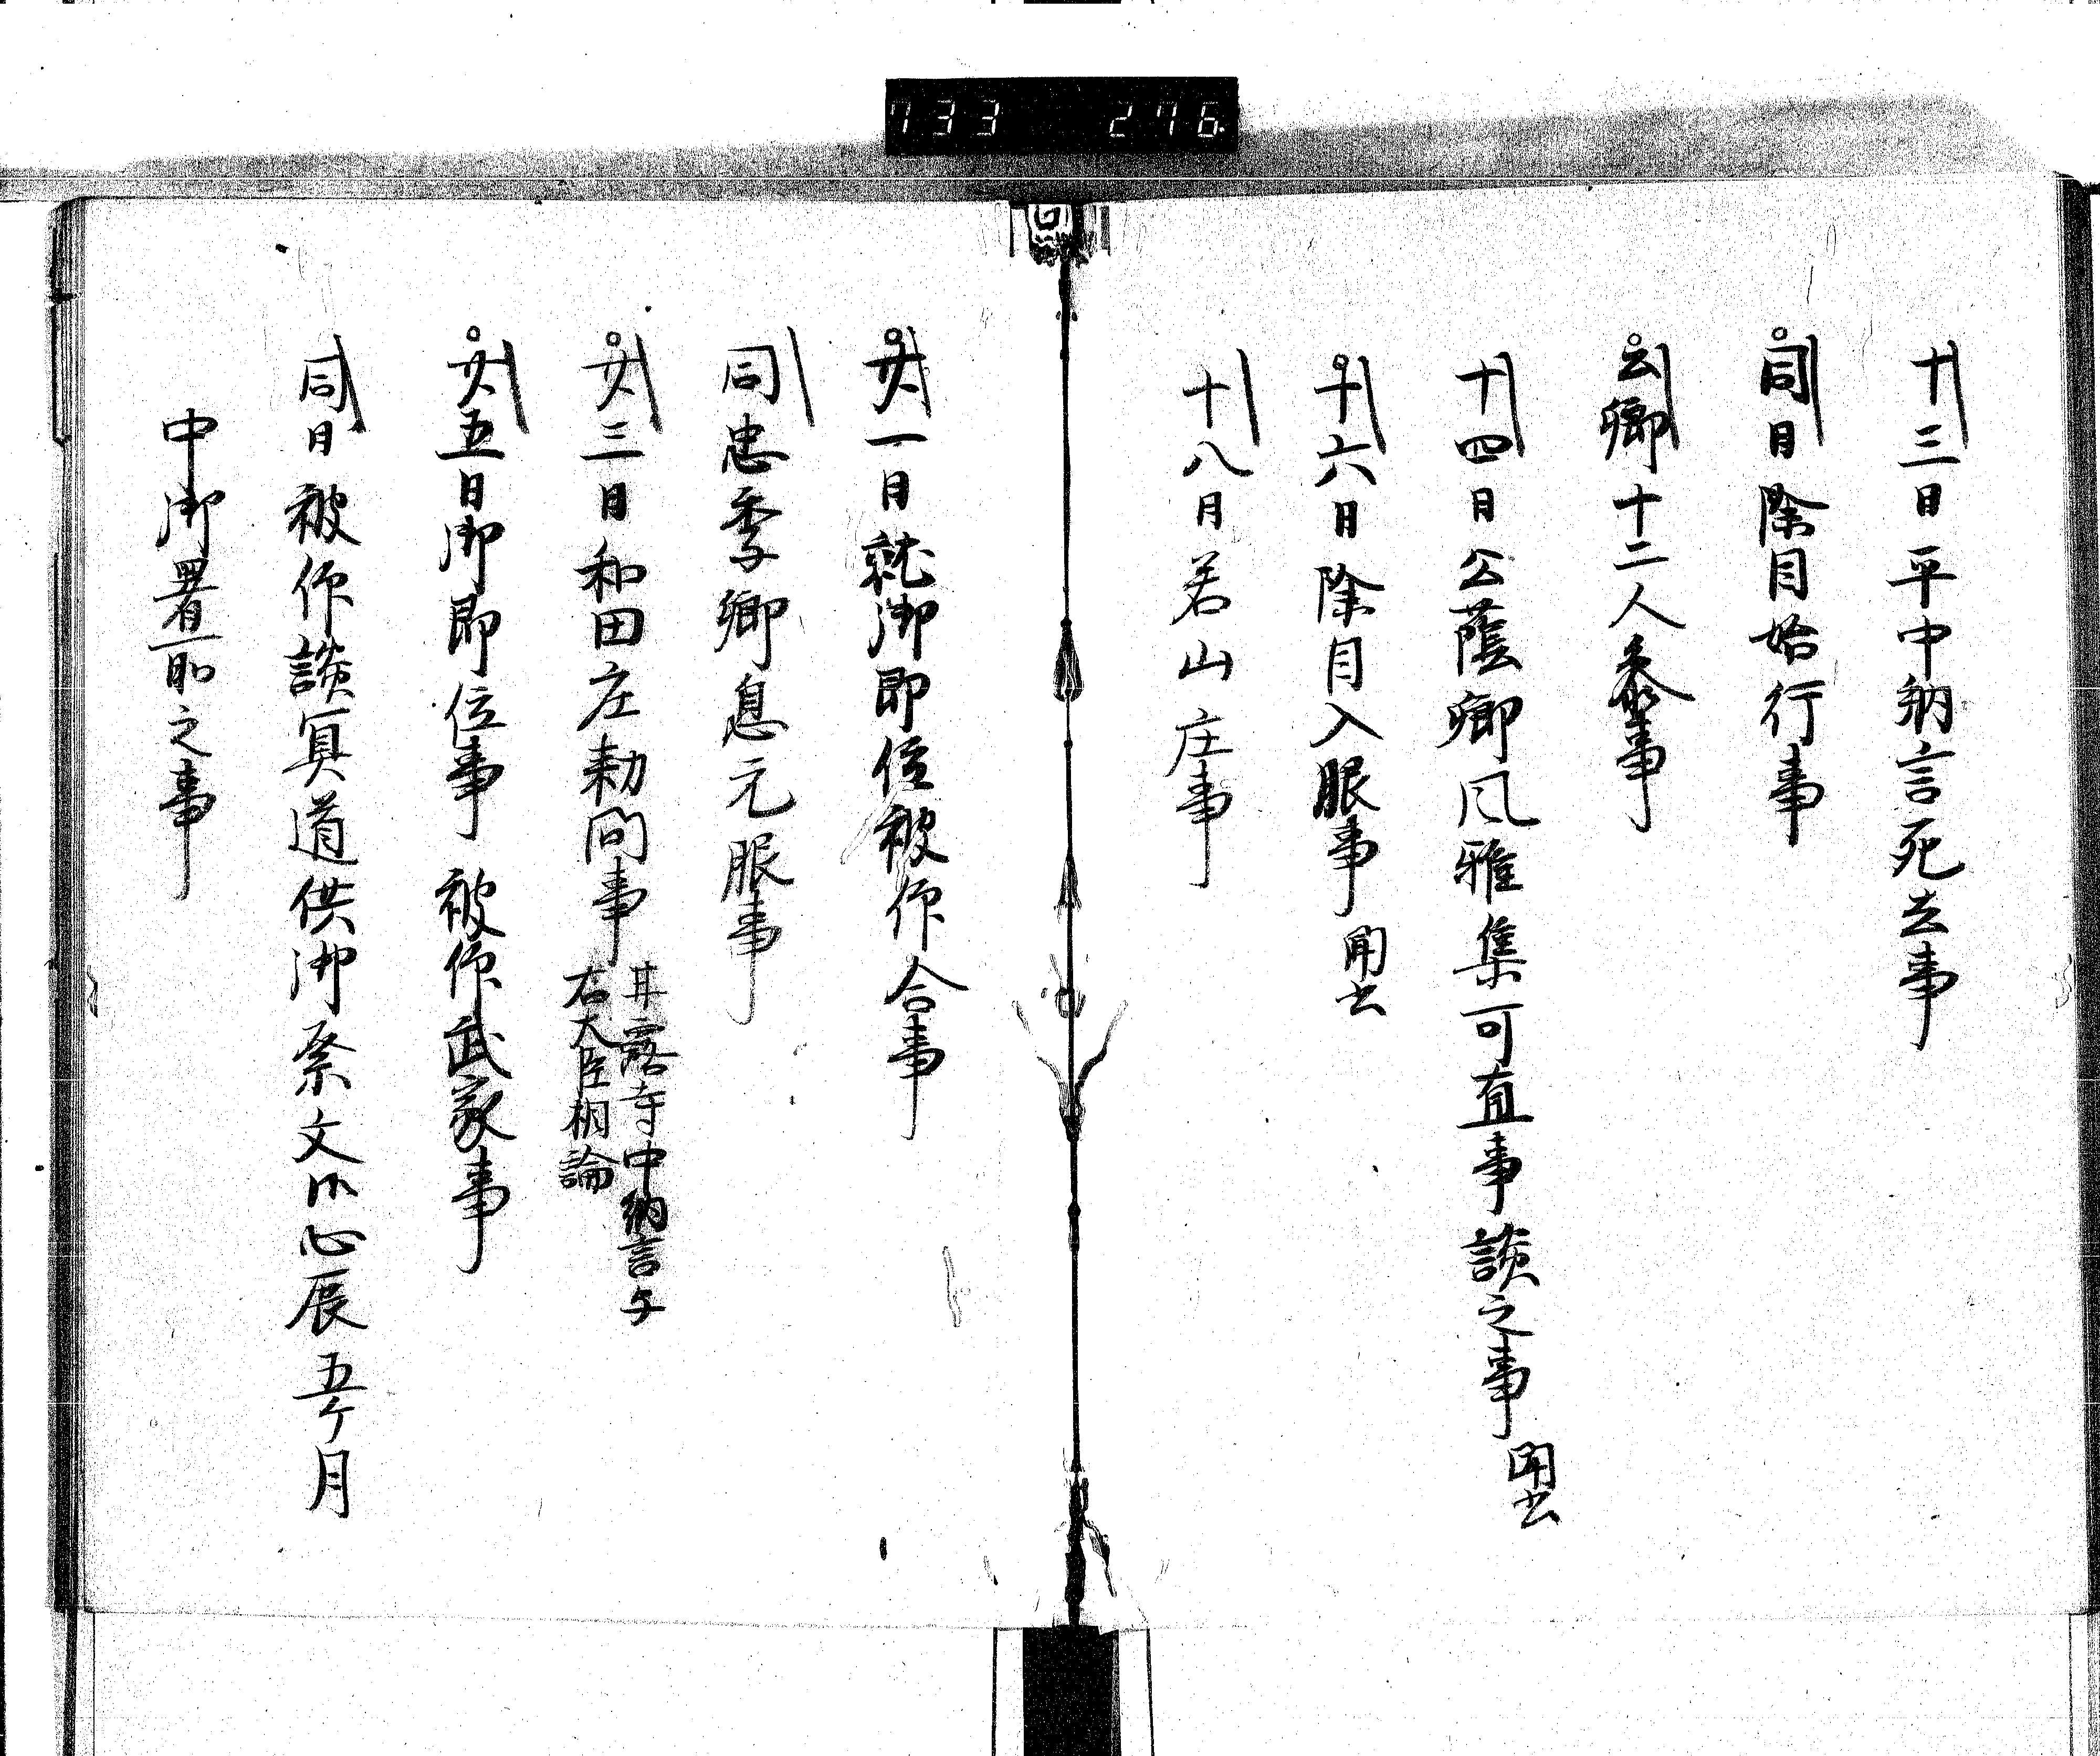 733 276
十三日平中納言死去事
同日除目始行事
公卿十二人参事
十四日公蔭卿風雅集可直事談之事 聞書
十六日除目入眼事 聞書
十八日若山庄事
廿一日就御即位被仰合事
同忠季卿息元服事
廿三日和田庄勅問事
甘露寺中納言与
右大臣相論
廿五日御即位事 被仰武家事
同日被仰談冥道供御祭文 心辰五ケ月
中御署所之事